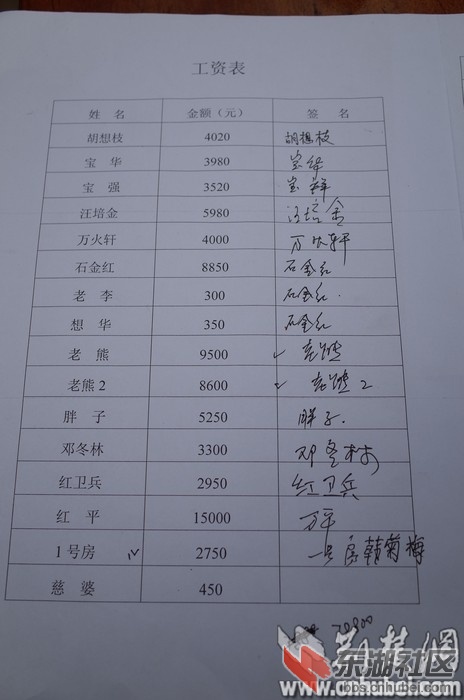 工资表
姓 名 金额（元） 签 名
胡想枝 4020 胡想枝
宝 华 3980 宝华
宝 强 3520 宝
汪培金 5980 汪培金
万火轩 4000 万火轩
石金红 8850 石金红
老 李 300 石金红
想 华 350 石金红
老 熊 9500 ✓ 老熊
老熊2 8600 ✓ 老熊2
胖 子 5250 胖子
邓冬林 3300 邓冬林
红卫兵 2950 红卫兵
红 平 15000 万平
1号房 2750 一号房韩菊梅
慈 婆 450
荆楚网
东湖社区
www.cnhubei.com
bbs.cnhubei.com